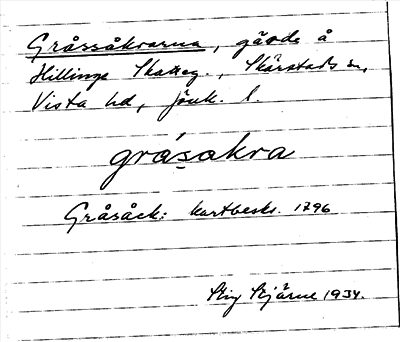 Gråssåkrarna, gärde å
Hillinge Skatteg., Skärstads sn,
Vista hd, Jönk. l.
grásakra
Gråsåck: kartbeskr. 1796
Stig Stjärne 1934.